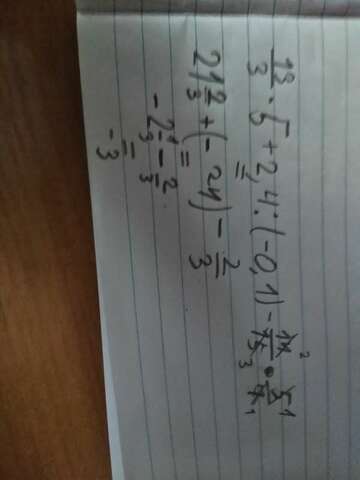 13/3 · 5 + 2,4 : (-0,1) - 14/15 · 5/7
=
21 2/3 + (-24) - 2/3
=
- 2 1/3 - 2/3
=
-3